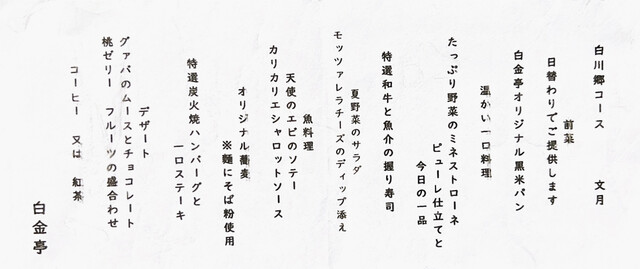 白川郷コース　文月
前菜
日替わりでご提供します
白金亭オリジナル黒米パン
温かい一口料理
たっぷり野菜のミネストローネ
ピューレ仕立てと
今日の一品
特選和牛と魚介の握り寿司
夏野菜のサラダ
モッツァレラチーズのディップ添え
魚料理
天使のエビのソテー
カリカリエシャロットソース
オリジナル蕎麦
※麺にそば粉使用
特選炭火焼ハンバーグと
一口ステーキ
デザート
グァバのムースとチョコレート
桃ゼリー　フルーツの盛合わせ
コーヒー　又は　紅茶
白金亭